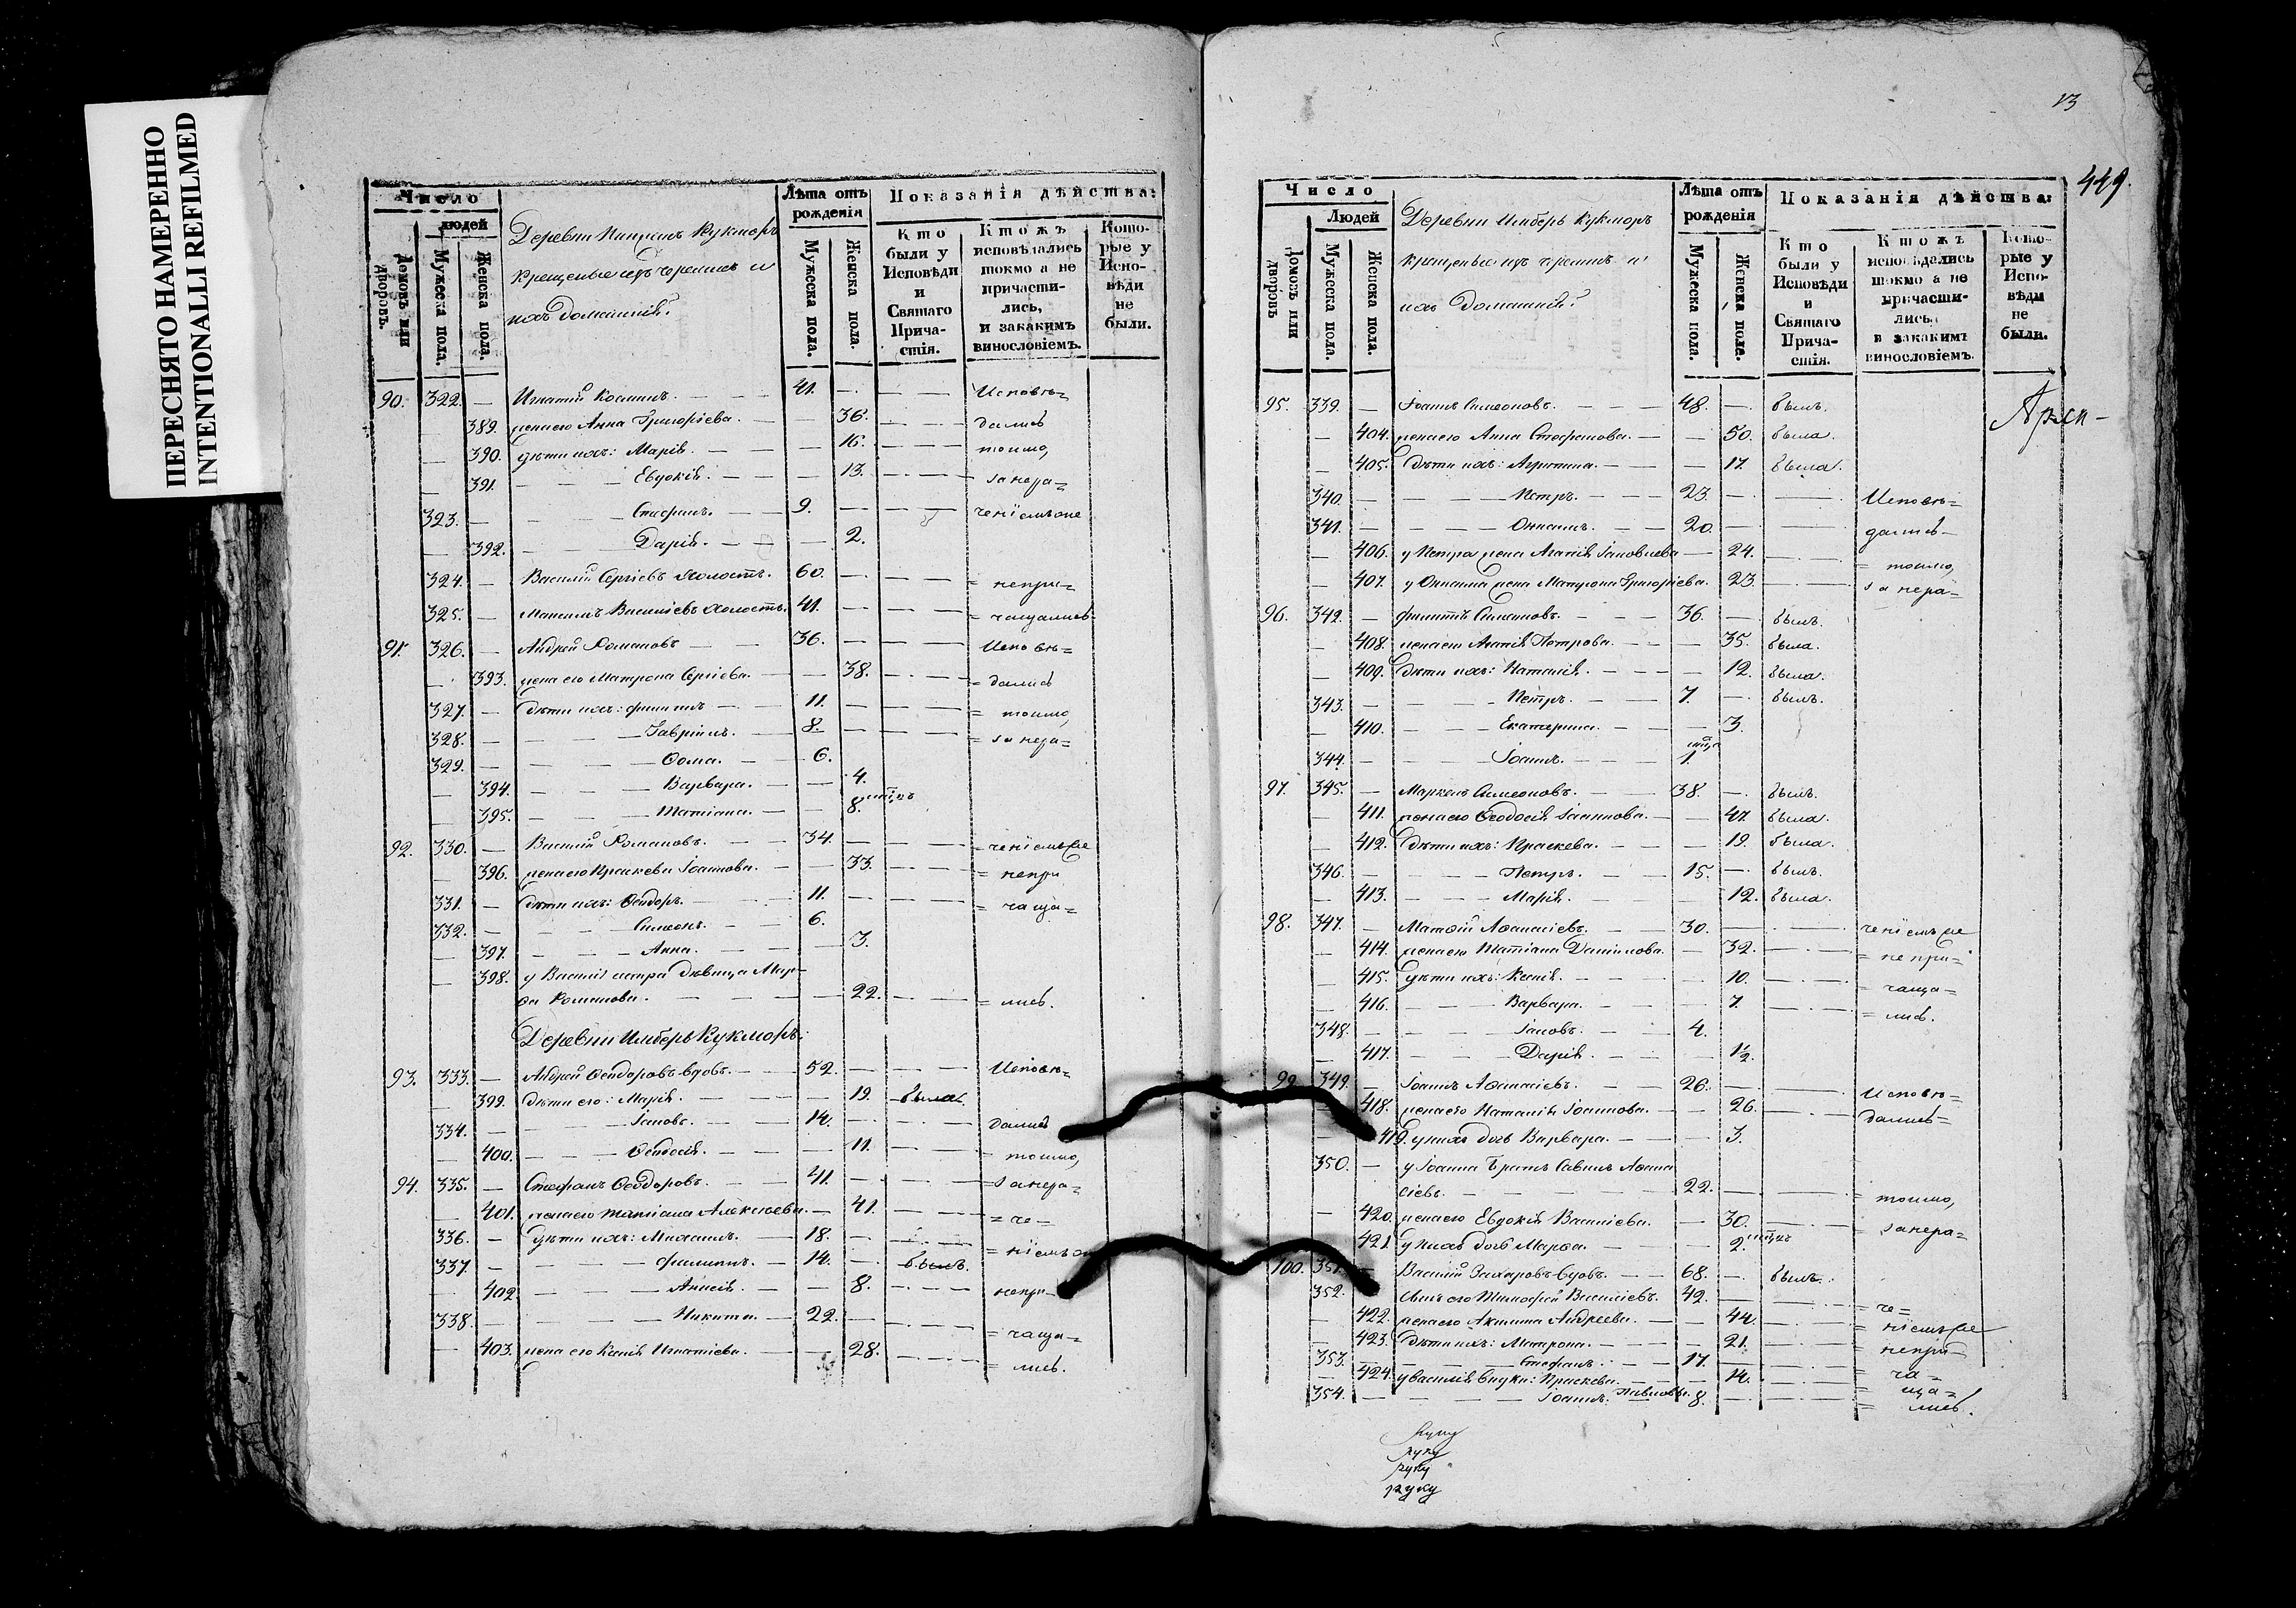 ПЕРЕСНЯТО НАМЕРЕННО
INTENTIONALLI REFILMED
Число
людей
Домовъ или дворовъ.
Мужеска пола.
Женска пола.
Деревни Кукморъ
крещеные изъ черемисъ и
ихъ домашнiй.
Лѣта отъ рожденія
Мужеска пола.
Женска пола.
Показанія дѣйства:
Кто были у Исповѣди и Святаго Прича-стія.
Ктожъ исповѣдались токмо а не причасти-лись, и закакимъ винословіемъ.
Кото-рые у Испо-вѣди не были.
90. 322. — 41. — Исповѣ=
389. жена его Анна Григорiева. — 36. далисъ
390. дѣти ихъ: Марiя. — 16. токмо,
391. Евдокiя. — 13. за нера=
323. — Стефанъ. 9. — ченiемъ
392. Дарiя. — 2.
324. — Василiй Сергiевъ холостъ. 60. — непри=
325. — Максимъ Василiевъ холостъ. 41. — =чащалисъ
91. 326. — Андрей Романовъ 36. — Исповѣ=
393. жена его Матрона Сергiева. — 38. =далисъ
327. — дѣти ихъ: Филиппъ 11. — =токмо,
328. — Гаврiилъ. 8. — =за нера=
329. — Ѳома. 6.
394. Варвара. — 4.
395. Татiана. — 8.
92. 330. — Василiй Романовъ. 34. — =ченiемъ
396. жена его Праскева Iоаннова. — 33. =непри
331. — дѣти ихъ: Ѳеодоръ. 11. — =чаща=
332. — Симеонъ. 6.
397. Анна. — 3.
398. у Василiя сестра дѣвица Мар-
ѳа Романова. — 22. =лисъ.
Деревни Имберь Кукморъ:
93. 333. — Андрей Ѳеодоровъ вдовъ. 52. — Исповѣ=
399. дѣти его: Марiя. — 19. была.
334. — Iаковъ. 14. — далисъ
400. Ѳеодосiя. — 11. =токмо,
94. 335. — Стефанъ Ѳеодоровъ. 41. — =за нера=
401. жена его Татiана Алексѣева. — 41. =че=
336. — дѣти ихъ: Михаилъ. 18. — =нiемъ
337. — Филиппъ. 14. — былъ.
402. — 8. непри=
338. — Никита. 22. — =чаща=
403. жена его Ксенiя Игнатiева. — 28. =лисъ.
13
449.
Число
Людей
Домовъ или дворовъ
Мужеска пола.
Женска пола.
Деревни Имберь Кукморъ
крещеные изъ черемисъ и
ихъ домашнiй.
Лѣта отъ рожденія
Мужеска пола.
Женска пола.
Показанія дѣйства:
Кто были у Исповѣди и Святаго Прича-стія.
Ктожъ исповѣдались токмо а не причасти-лись, и закакимъ винословіемъ.
Кото-рые у Испо-вѣди не были.
95. 339. — Iоаннъ Симеоновъ. 48. — былъ.
404. жена его Анна Стефанова. — 50. была.
405. дѣти ихъ: Агрипина. — 17. была.
340. — Петръ. 23. — Исповѣ=
341. — Онисимъ. 20. — далисъ
406. у Петра жена Агапiя Iаковлева — 24. =токмо,
407. у Онисима жена Матрона Григорiева. 23. за нера=
96. 342. — Филиппъ Симеоновъ. 36. — былъ.
408. жена его Агапiя Петрова. — 35. была.
409. дѣти ихъ: Наталiя. — 12. была.
343. — Петръ. 7. — былъ.
410. Екатерина. — 3.
344. — Iоаннъ. 1.
97. 345. — Маркелъ Симеоновъ. 38. — былъ.
411. жена его Ѳеодосiя Iоаннова. — 47. была.
412. дѣти ихъ: Праскева. — 19. была.
346. — Петръ. 15. — былъ.
413. Марiя. — 12. была.
98. 347. — Матѳiй Аѳанасiевъ. 30. — ченiемъ
414. жена его Татiана Данiилова. — 32. =непри=
415. дѣти ихъ: Ксенiя. — 10. =чаща=
416. Варвара. — 7. =лисъ.
348. — Iаковъ. 4.
417. Дарiя. — 1½.
99. 349. — Iоаннъ Аѳанасiевъ. 26. — Исповѣ=
418. жена его Наталiя Iоаннова. — 26. далисъ=
419. у нихъ дочь Варвара. — 3.
350. — у Iоанна братъ Савинъ Аѳана
сiевъ. 22. — =токмо,
420. жена его Евдокiя Василiева. — 30. =за нера=
421. у нихъ дочь Марѳа. — 2.
100. 351. — Василiй Захаровъ вдовъ. 68. — былъ.
352. — сынъ его Тимофей Василiевъ. 42. — =че=
422. жена его Акилина Андреева. — 44. =нiемъ
423. дѣти ихъ: Матрона. — 21. =непри
353. — Стефанъ. 17. — =ча=
424. у Василiя внуки: Праскева. — 14. =ща=
354. — Iоаннъ Павловъ. 8. — =лисъ.
руку
руку
руку
руку